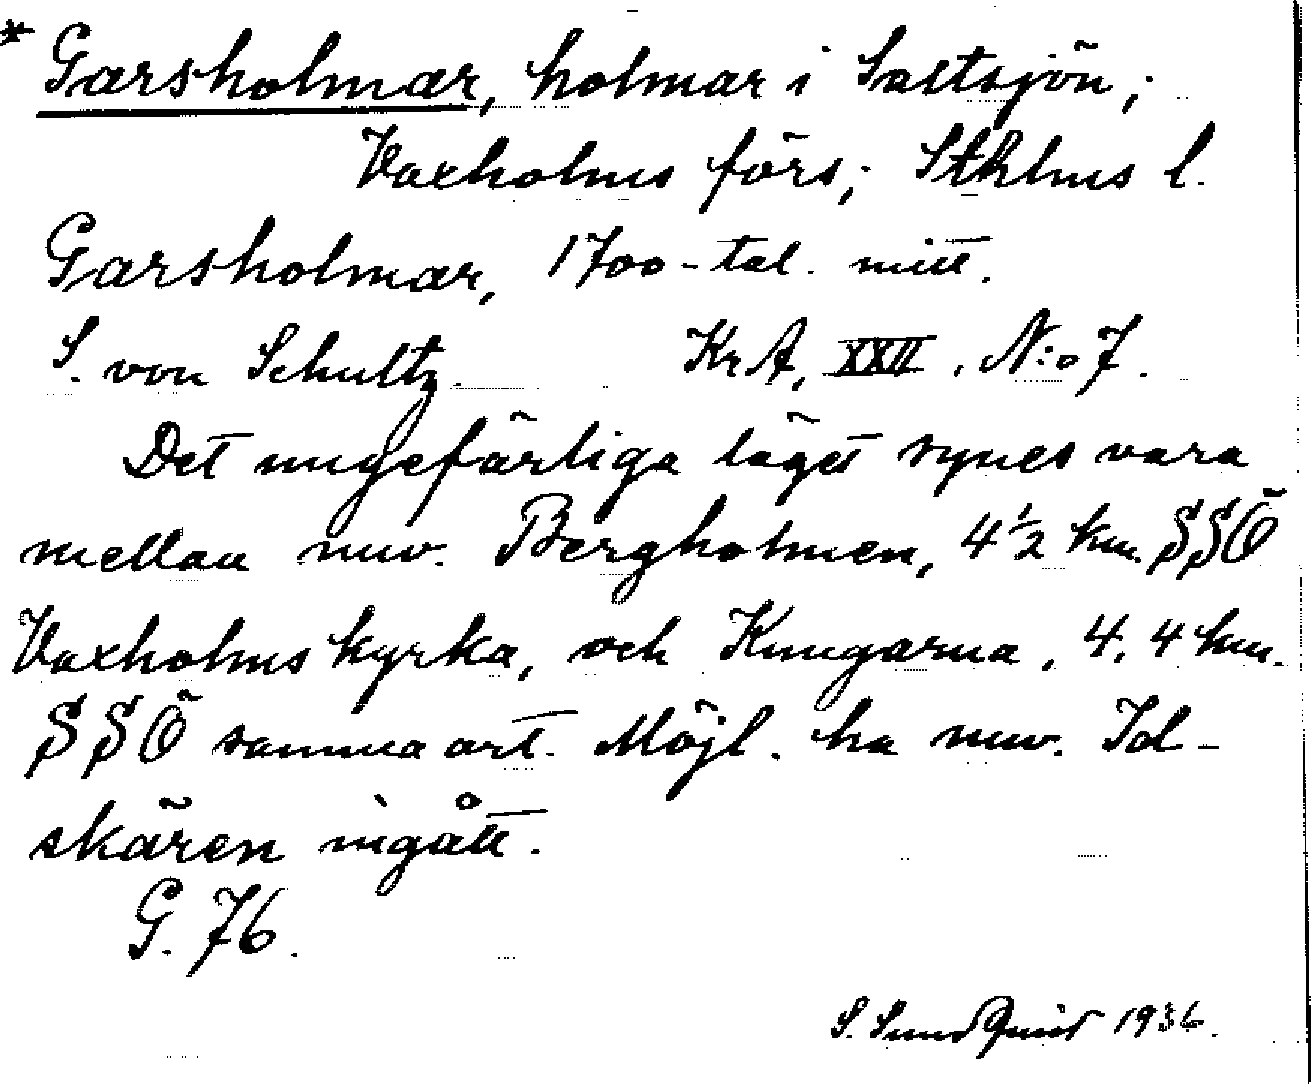 * Garsholmar, holmar i Saltsjön;
Vaxholms förs; Sthlms l.
Garsholmar, 1700-tal. mitt.
S. von Schultz. KrA, XXII. N:o 7.
Det ungefärliga läget synes vara
mellan nuv. Bergholmen, 4½ km. SSÖ
Vaxholms kyrka, och Kungarna, 4,4 km.
SSÖ samma ort. Möjl. ha nuv. Id-
skären ingått.
G. 76.
S. Sundquist 1936.